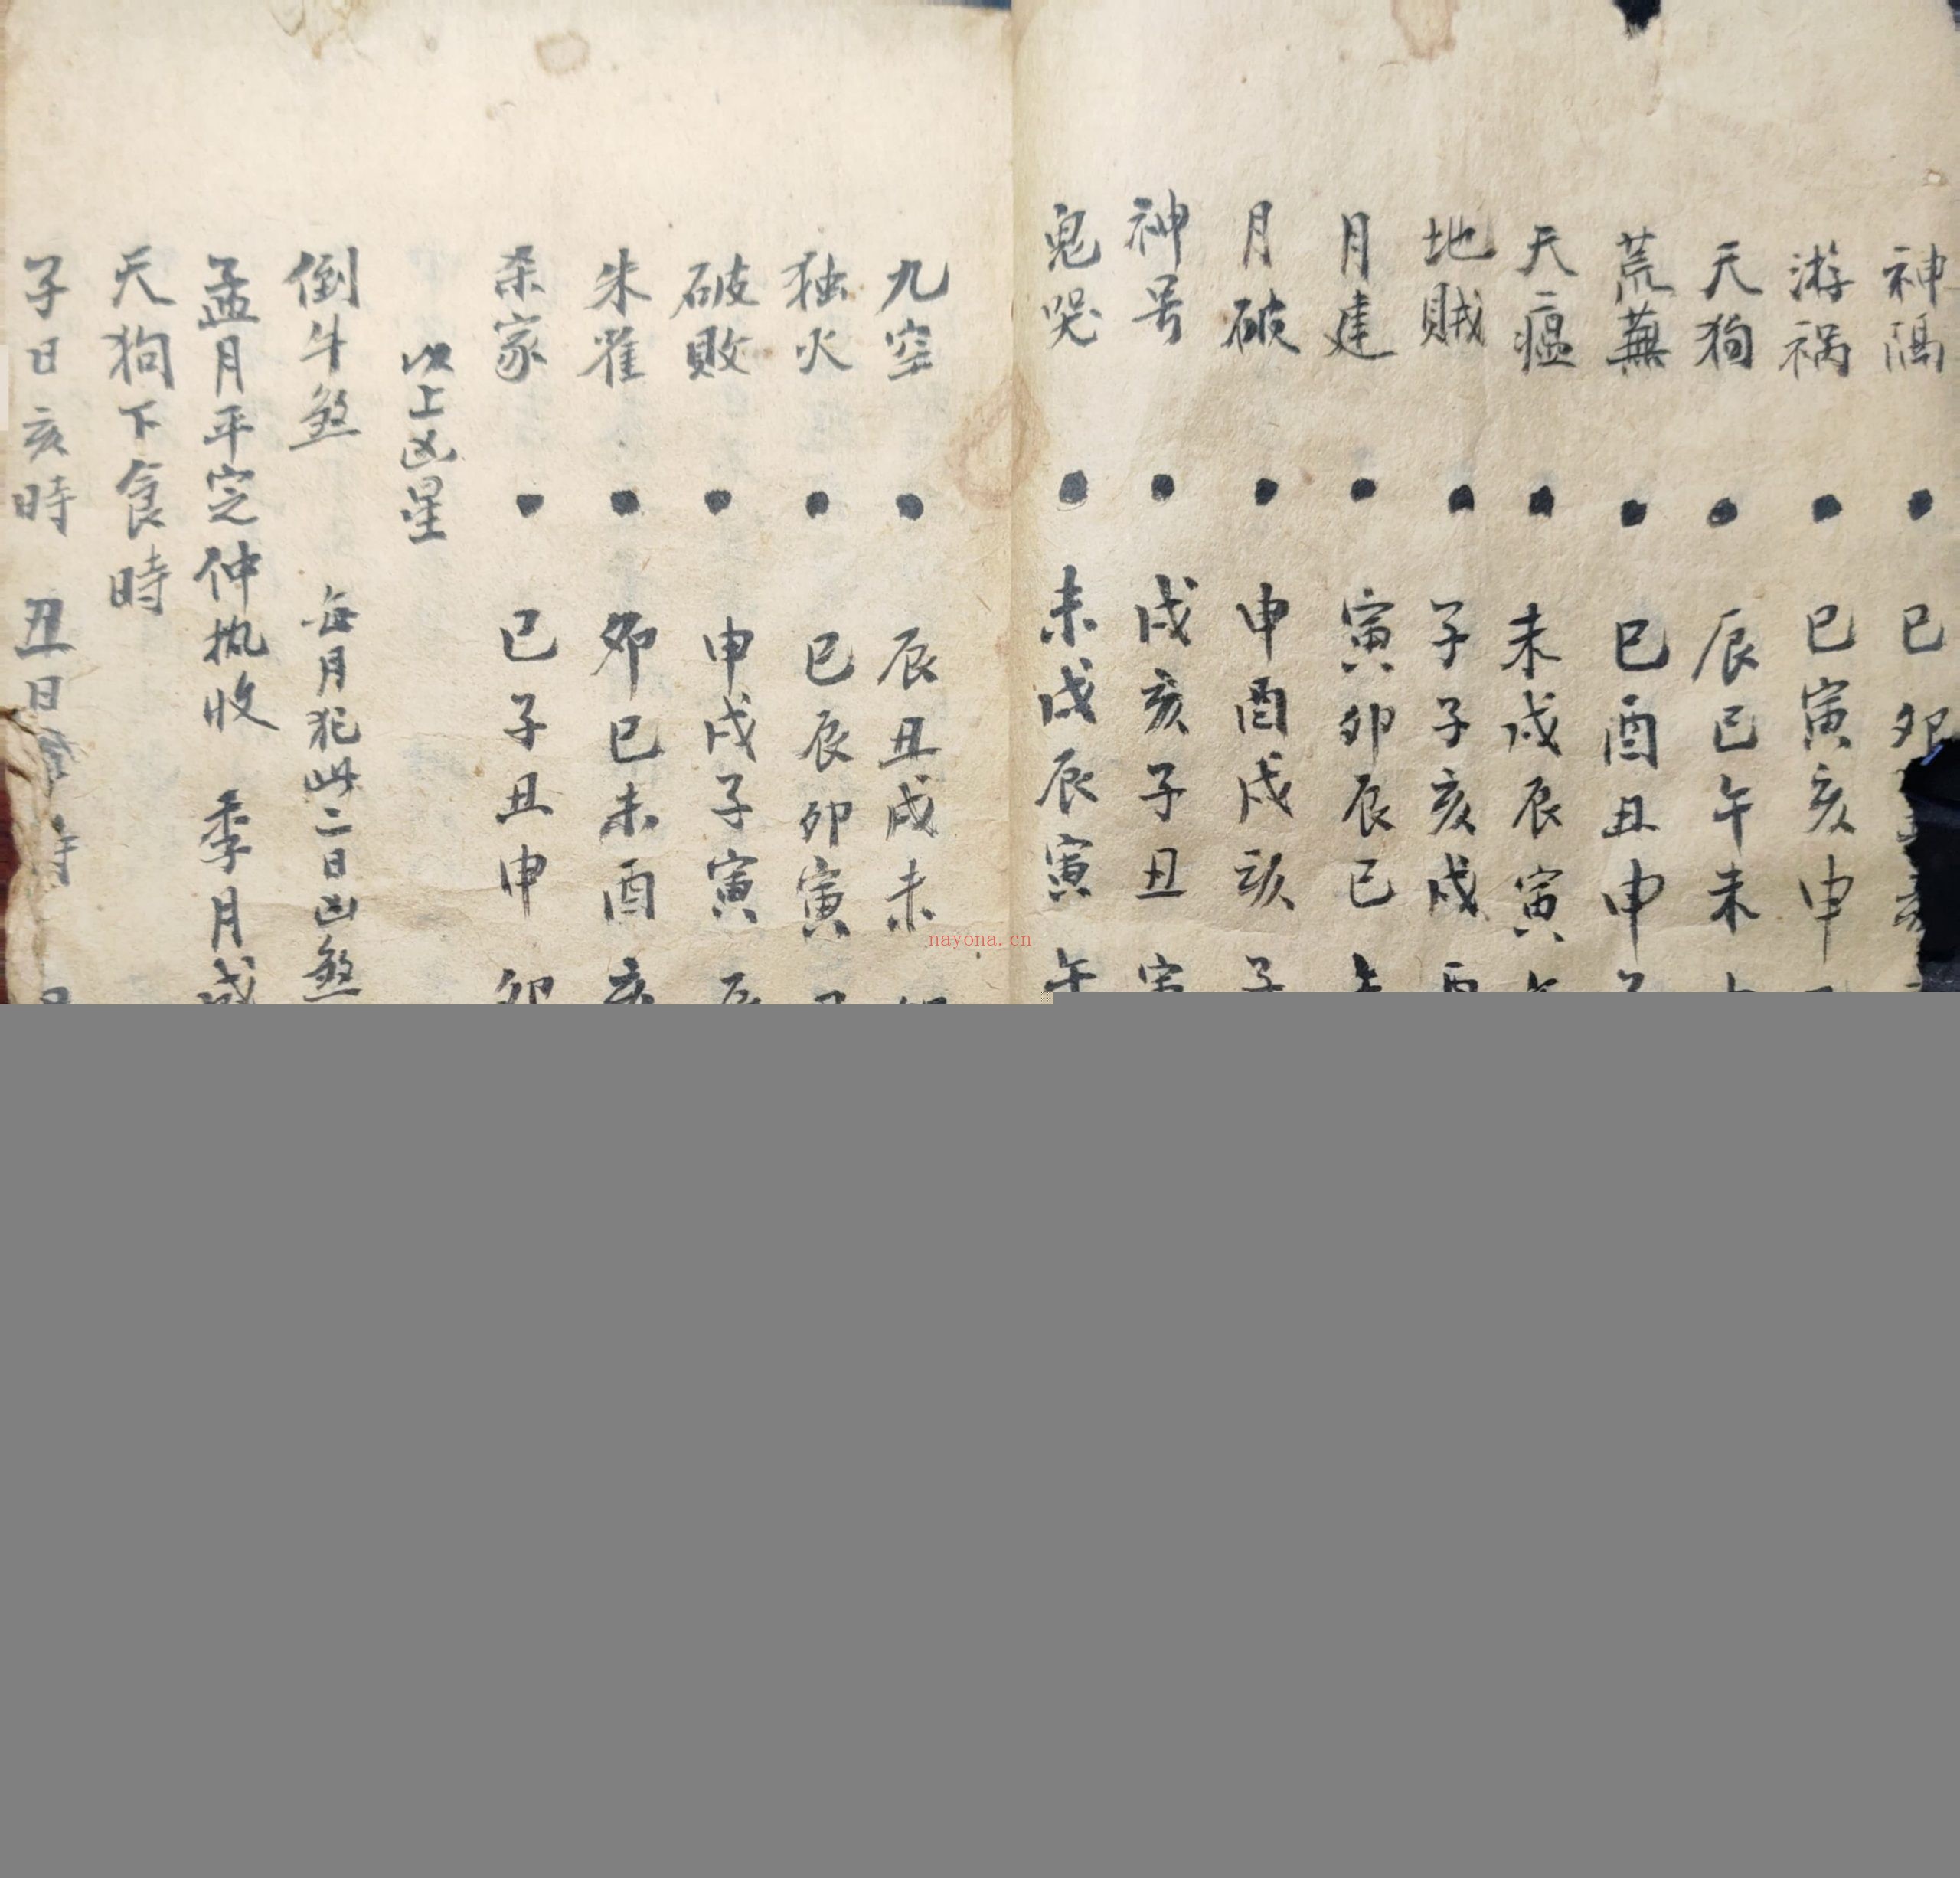 神隔 ● 巳卯
游祸 ● 巳寅亥申
天狗 ● 辰巳午未
荒蕪 ● 巳酉丑申
天瘟 ● 未戌辰寅
地賊 ● 子子亥戌酉
月建 ● 寅卯辰巳
月破 ● 申酉戌亥子
神号 ● 戌亥子丑寅
鬼哭 ● 未戌辰寅午
九空 ● 辰丑戌未
独火 ● 巳辰卯寅
破敗 ● 申戌子寅辰
朱雀 ● 卯巳未酉亥
杀家 ● 巳子丑申卯
以上凶星
倒牛煞 每月犯此二日凶煞
孟月平定仲执收 季月成
天狗下食時
子日亥時 丑日
nayona.cn